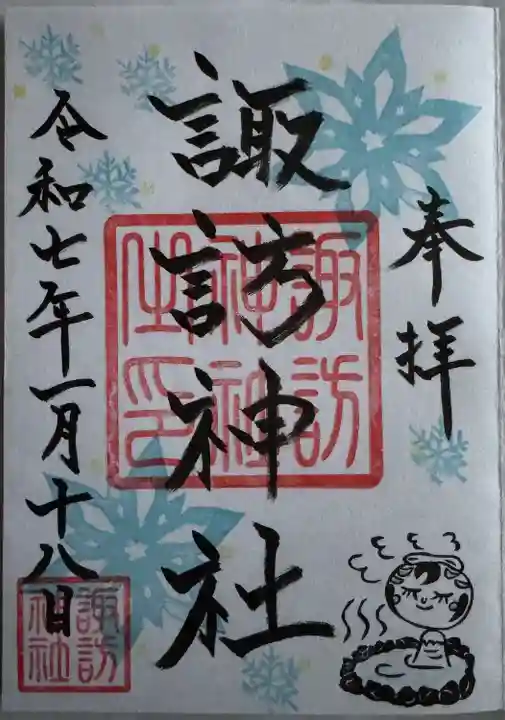 奉拝
諏訪神社
令和七年一月十八日
諏訪
神社
之印
諏訪
神社